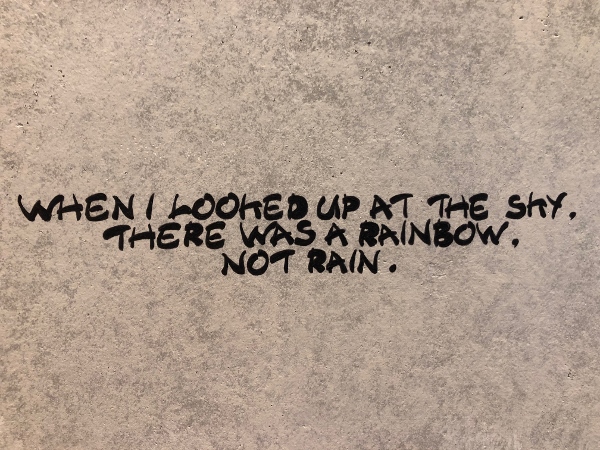 WHEN I LOOKED UP AT THE SKY,
THERE WAS A RAINBOW,
NOT RAIN.